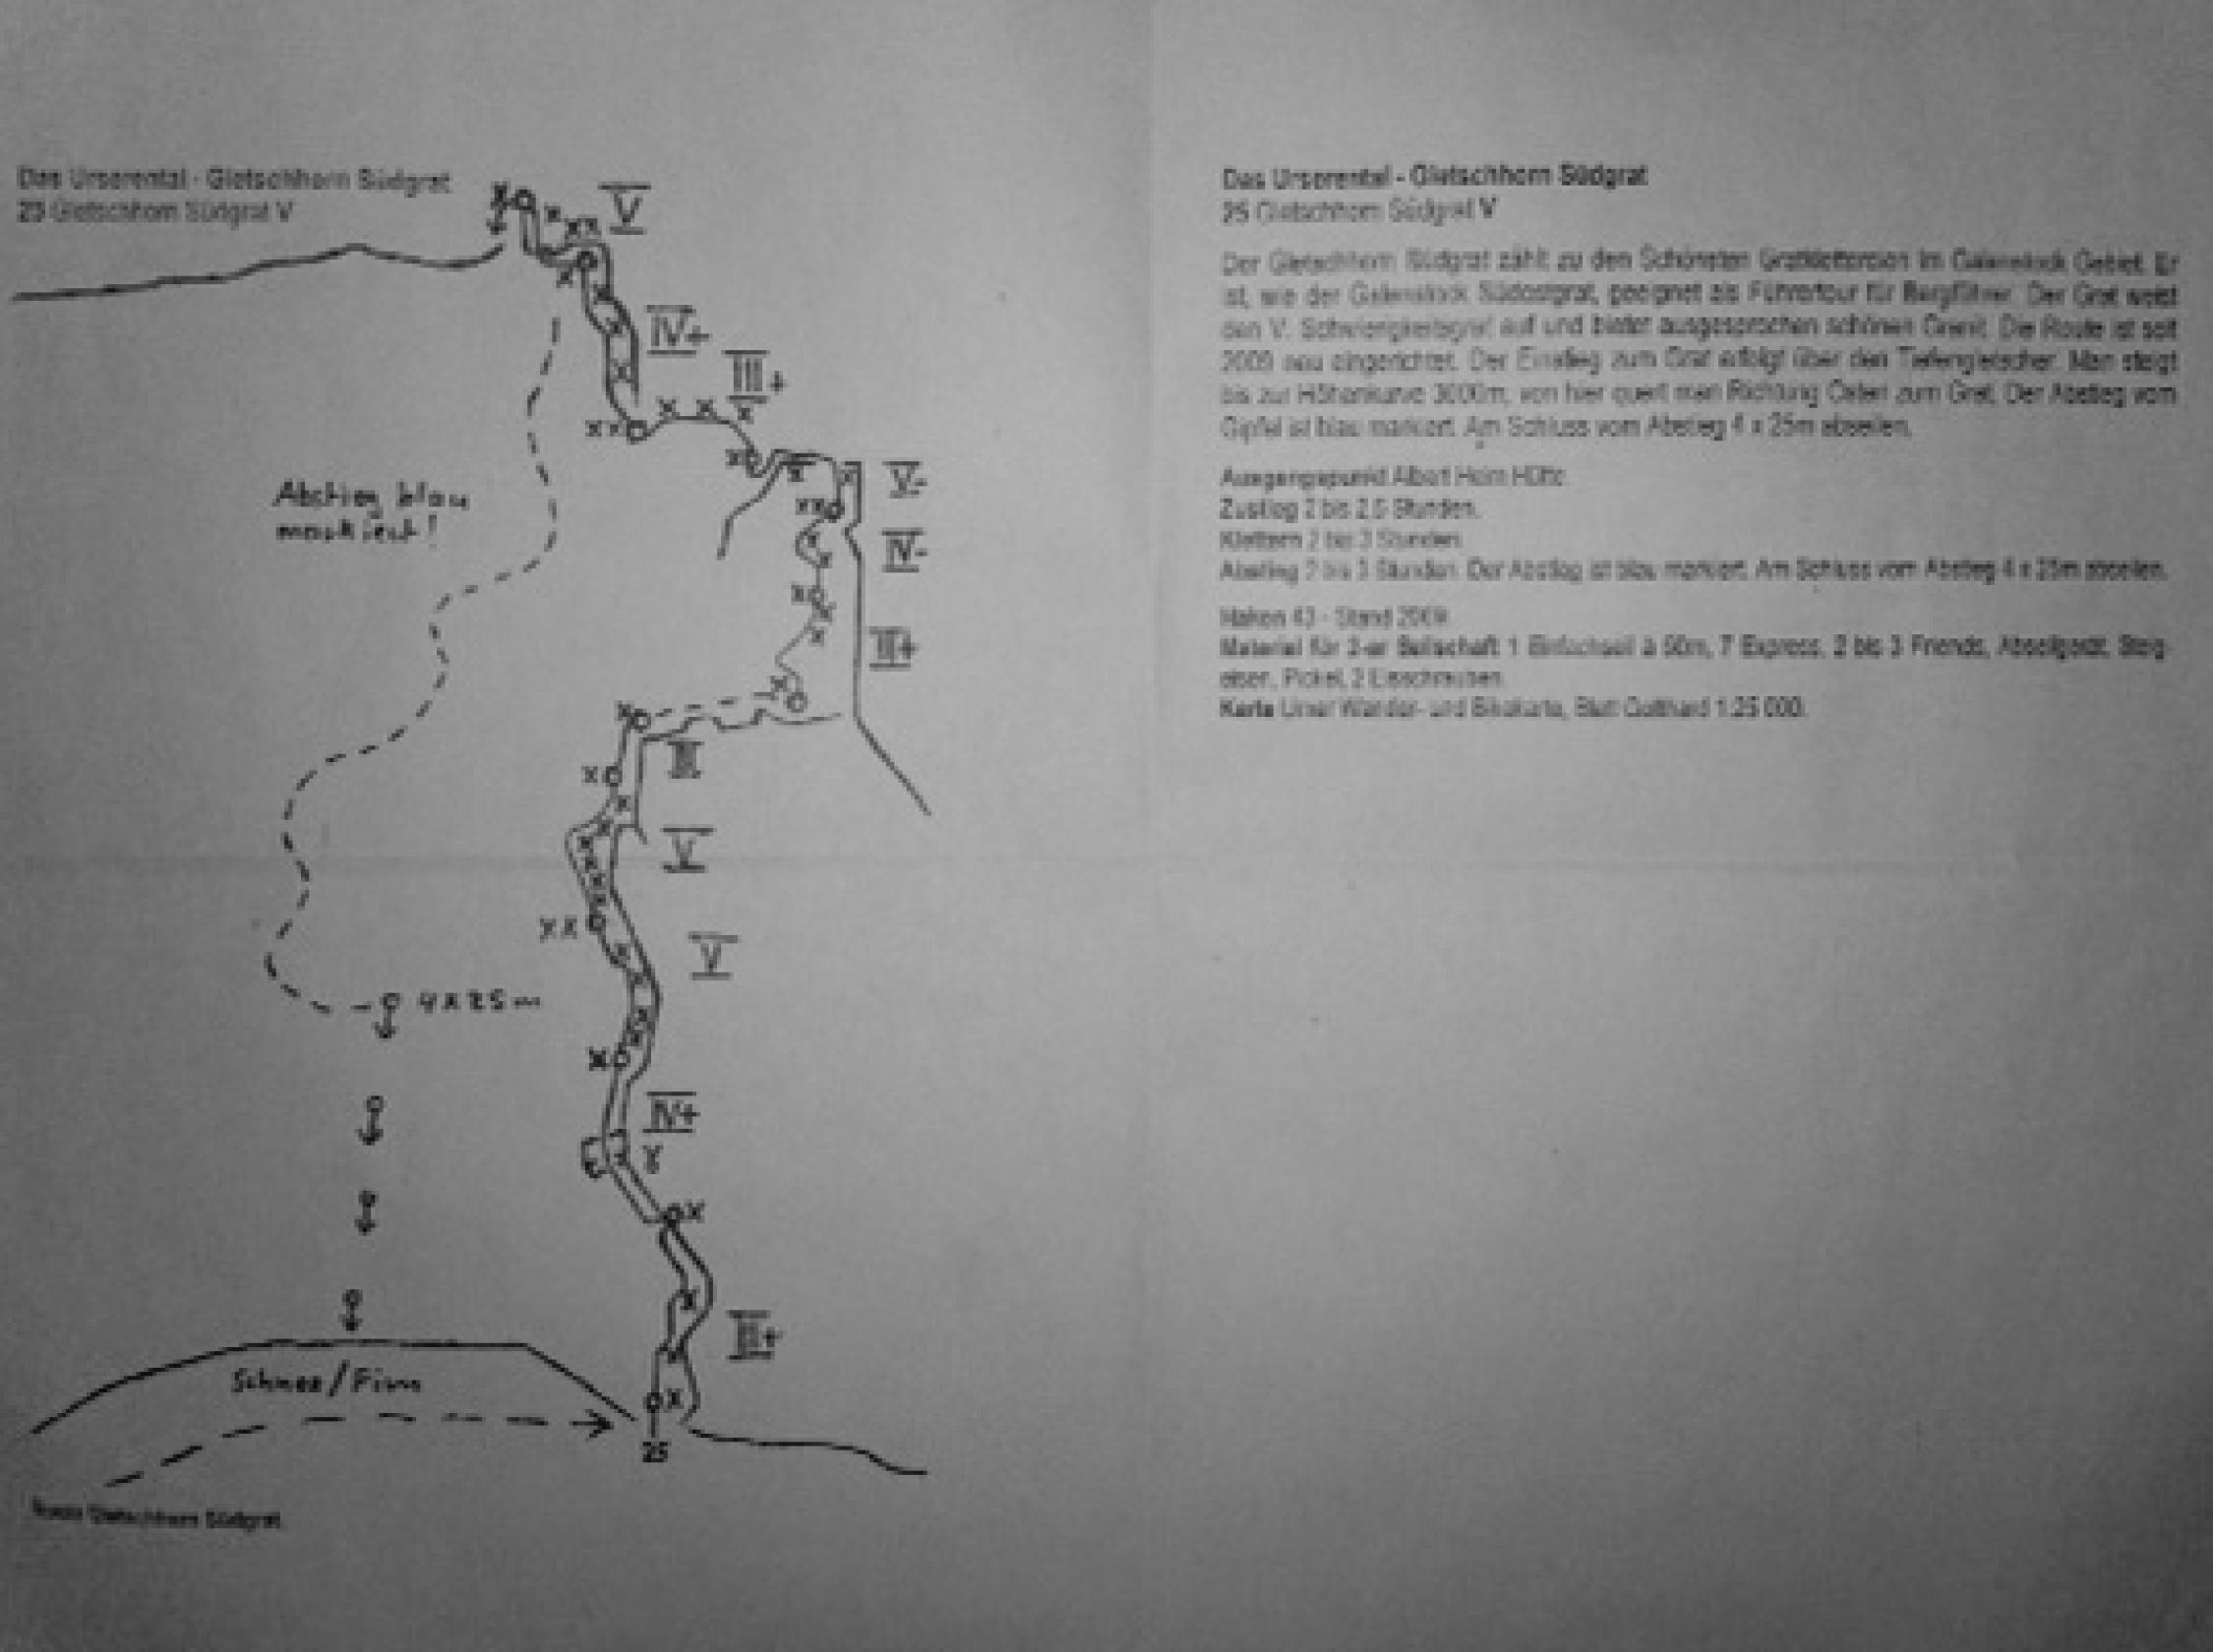 Das Urserental - Gletschhorn Südgrat
25 Gletschhorn Südgrat V
V
IV+
III+
V-
IV-
III+
Abstieg blau
markiert!
III
V
V
4x25m
IV+
III+
Schnee/Firn
25
Gletschhorn Südgrat
Das Urserental - Gletschhorn Südgrat
25 Gletschhorn Südgrat V
Der Gletschhorn Südgrat zählt zu den Schönsten Gratklettereien im Galenstock Gebiet. Er
ist, wie der Galenstock Südostgrat, geeignet als Führertour für Bergführer. Der Grat weist
den V. Schwierigkeitsgrat auf und bietet ausgesprochen schönen Granit. Die Route ist seit
2009 neu eingerichtet. Der Einstieg zum Grat erfolgt über den Tiefengletscher. Man steigt
bis zur Höhenkurve 3000m, von hier quert man Richtung Osten zum Grat. Der Abstieg vom
Gipfel ist blau markiert. Am Schluss vom Abstieg 4 x 25m abseilen.
Ausgangspunkt Albert Heim Hütte
Zustieg 2 bis 2,5 Stunden.
Klettern 2 bis 3 Stunden
Abstieg 2 bis 3 Stunden. Der Abstieg ist blau markiert. Am Schluss vom Abstieg 4 x 25m abseilen.
Haken 43 - Stand 2009
Material für 2-er Seilschaft 1 Einfachseil à 50m, 7 Express, 2 bis 3 Friends, Abseilgerät, Steig-
eisen, Pickel, 2 Eisschrauben
Karte Urner Wander- und Bikekarte, Blatt Gotthard 1:25 000.